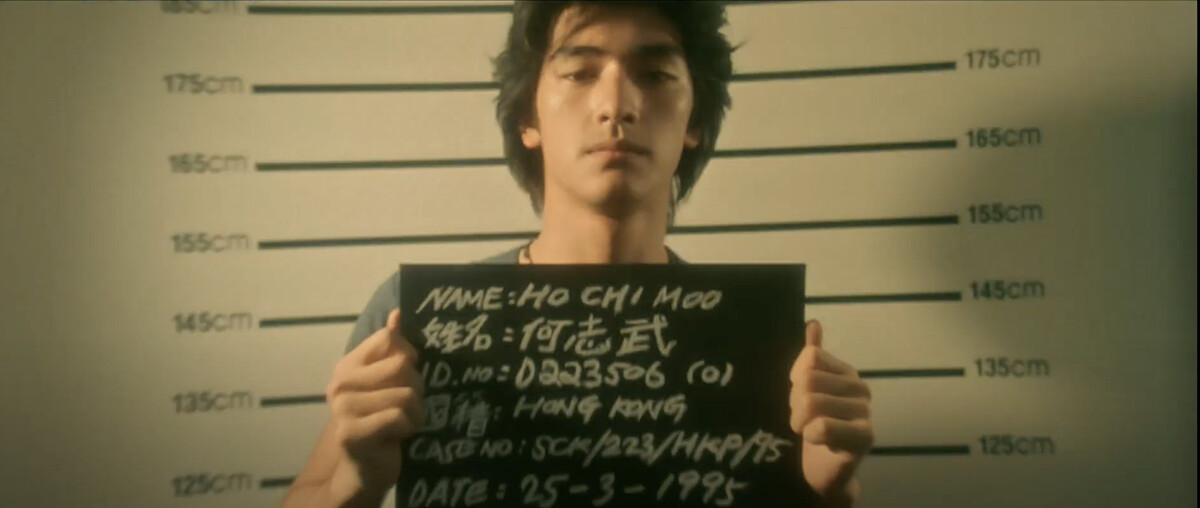 185cm
175cm 175cm
165cm 165cm
155cm 155cm
145cm 145cm
135cm 135cm
125cm 125cm
NAME: HO CHI MOO
姓名: 何志武
ID. NO: D223506 (0)
國籍: HONG KONG
CASE NO: SCK/223/HKP/95
DATE: 25-3-1995